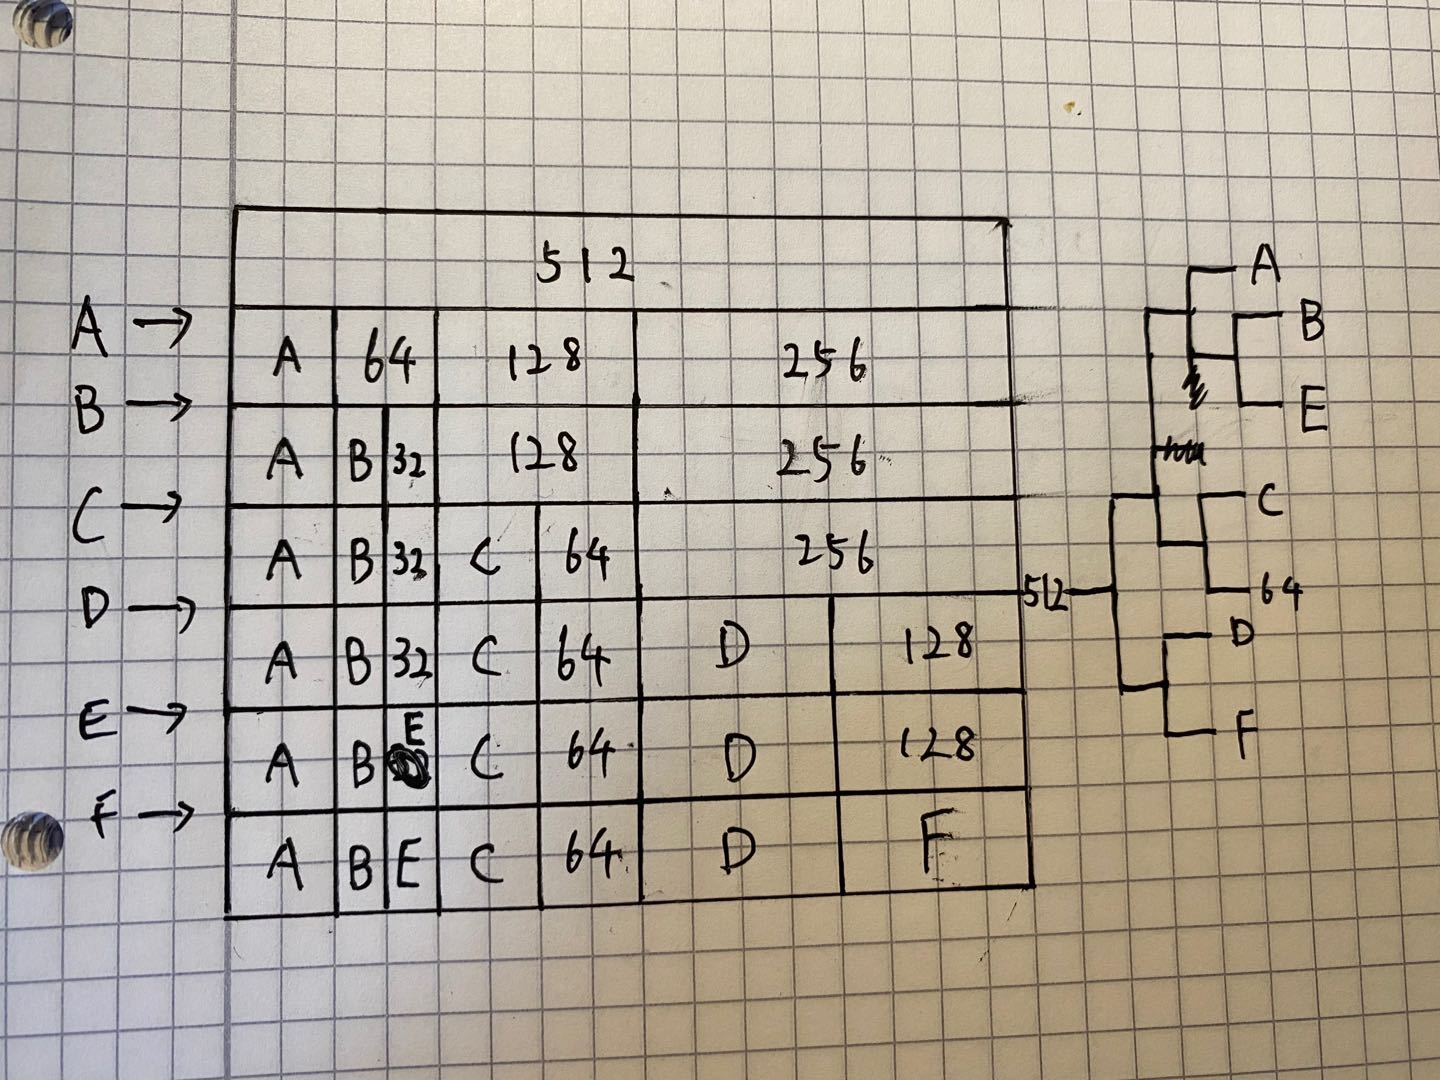 512
A → A 64 128 256
B → A B 32 128 256
C → A B 32 C 64 256
D → A B 32 C 64 D 128
E → A B E C 64 D 128
F → A B E C 64 D F
A
B
E
C
512
64
D
F